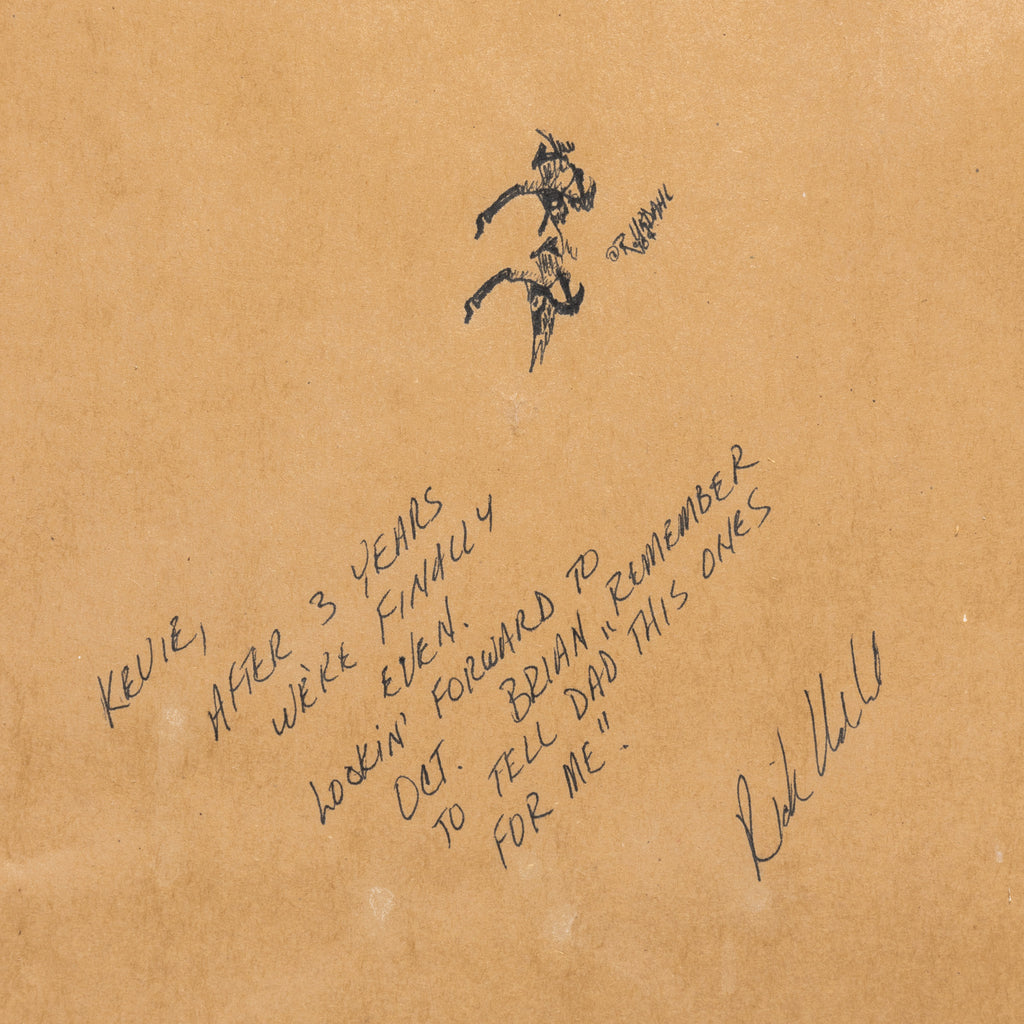 KEVIE,
AFTER 3 YEARS
WE'RE FINALLY
EVEN.
LOOKIN' FORWARD TO
OCT. BRIAN "REMEMBER
TO TELL DAD THIS ONES
FOR ME".
Rick